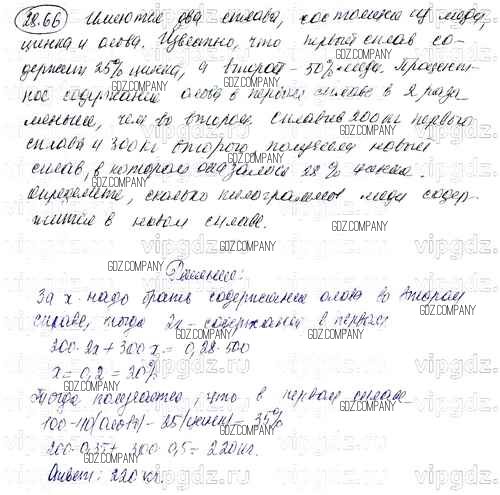 28.66 Имеются два сплава, состоящие из меди,
цинка и олова. Известно, что первый сплав со-
держит 25% цинка, а второй – 50% меди. Процент-
ное содержание олова в первом сплаве в 2 раза
меньше, чем во втором. Сплавив 200 кг первого
сплава и 300 кг второго, получили новый
сплав, в котором оказалось 28% цинка.
определите, сколько килограммов меди содер-
жится в новом сплаве.
Решение:
За x надо брать содержание олова во втором
сплаве, тогда 2x - содержание в первом
200·2x + 300x = 0,28·500
x = 0,2 = 20%
Тогда получается, что в первом сплаве
100-40(олова) - 25(цинка) = 35%
200·0,35 + 300·0,5 = 220 кг.
Ответ: 220 кг.
GDZ.COMPANY
vipgdz.ru